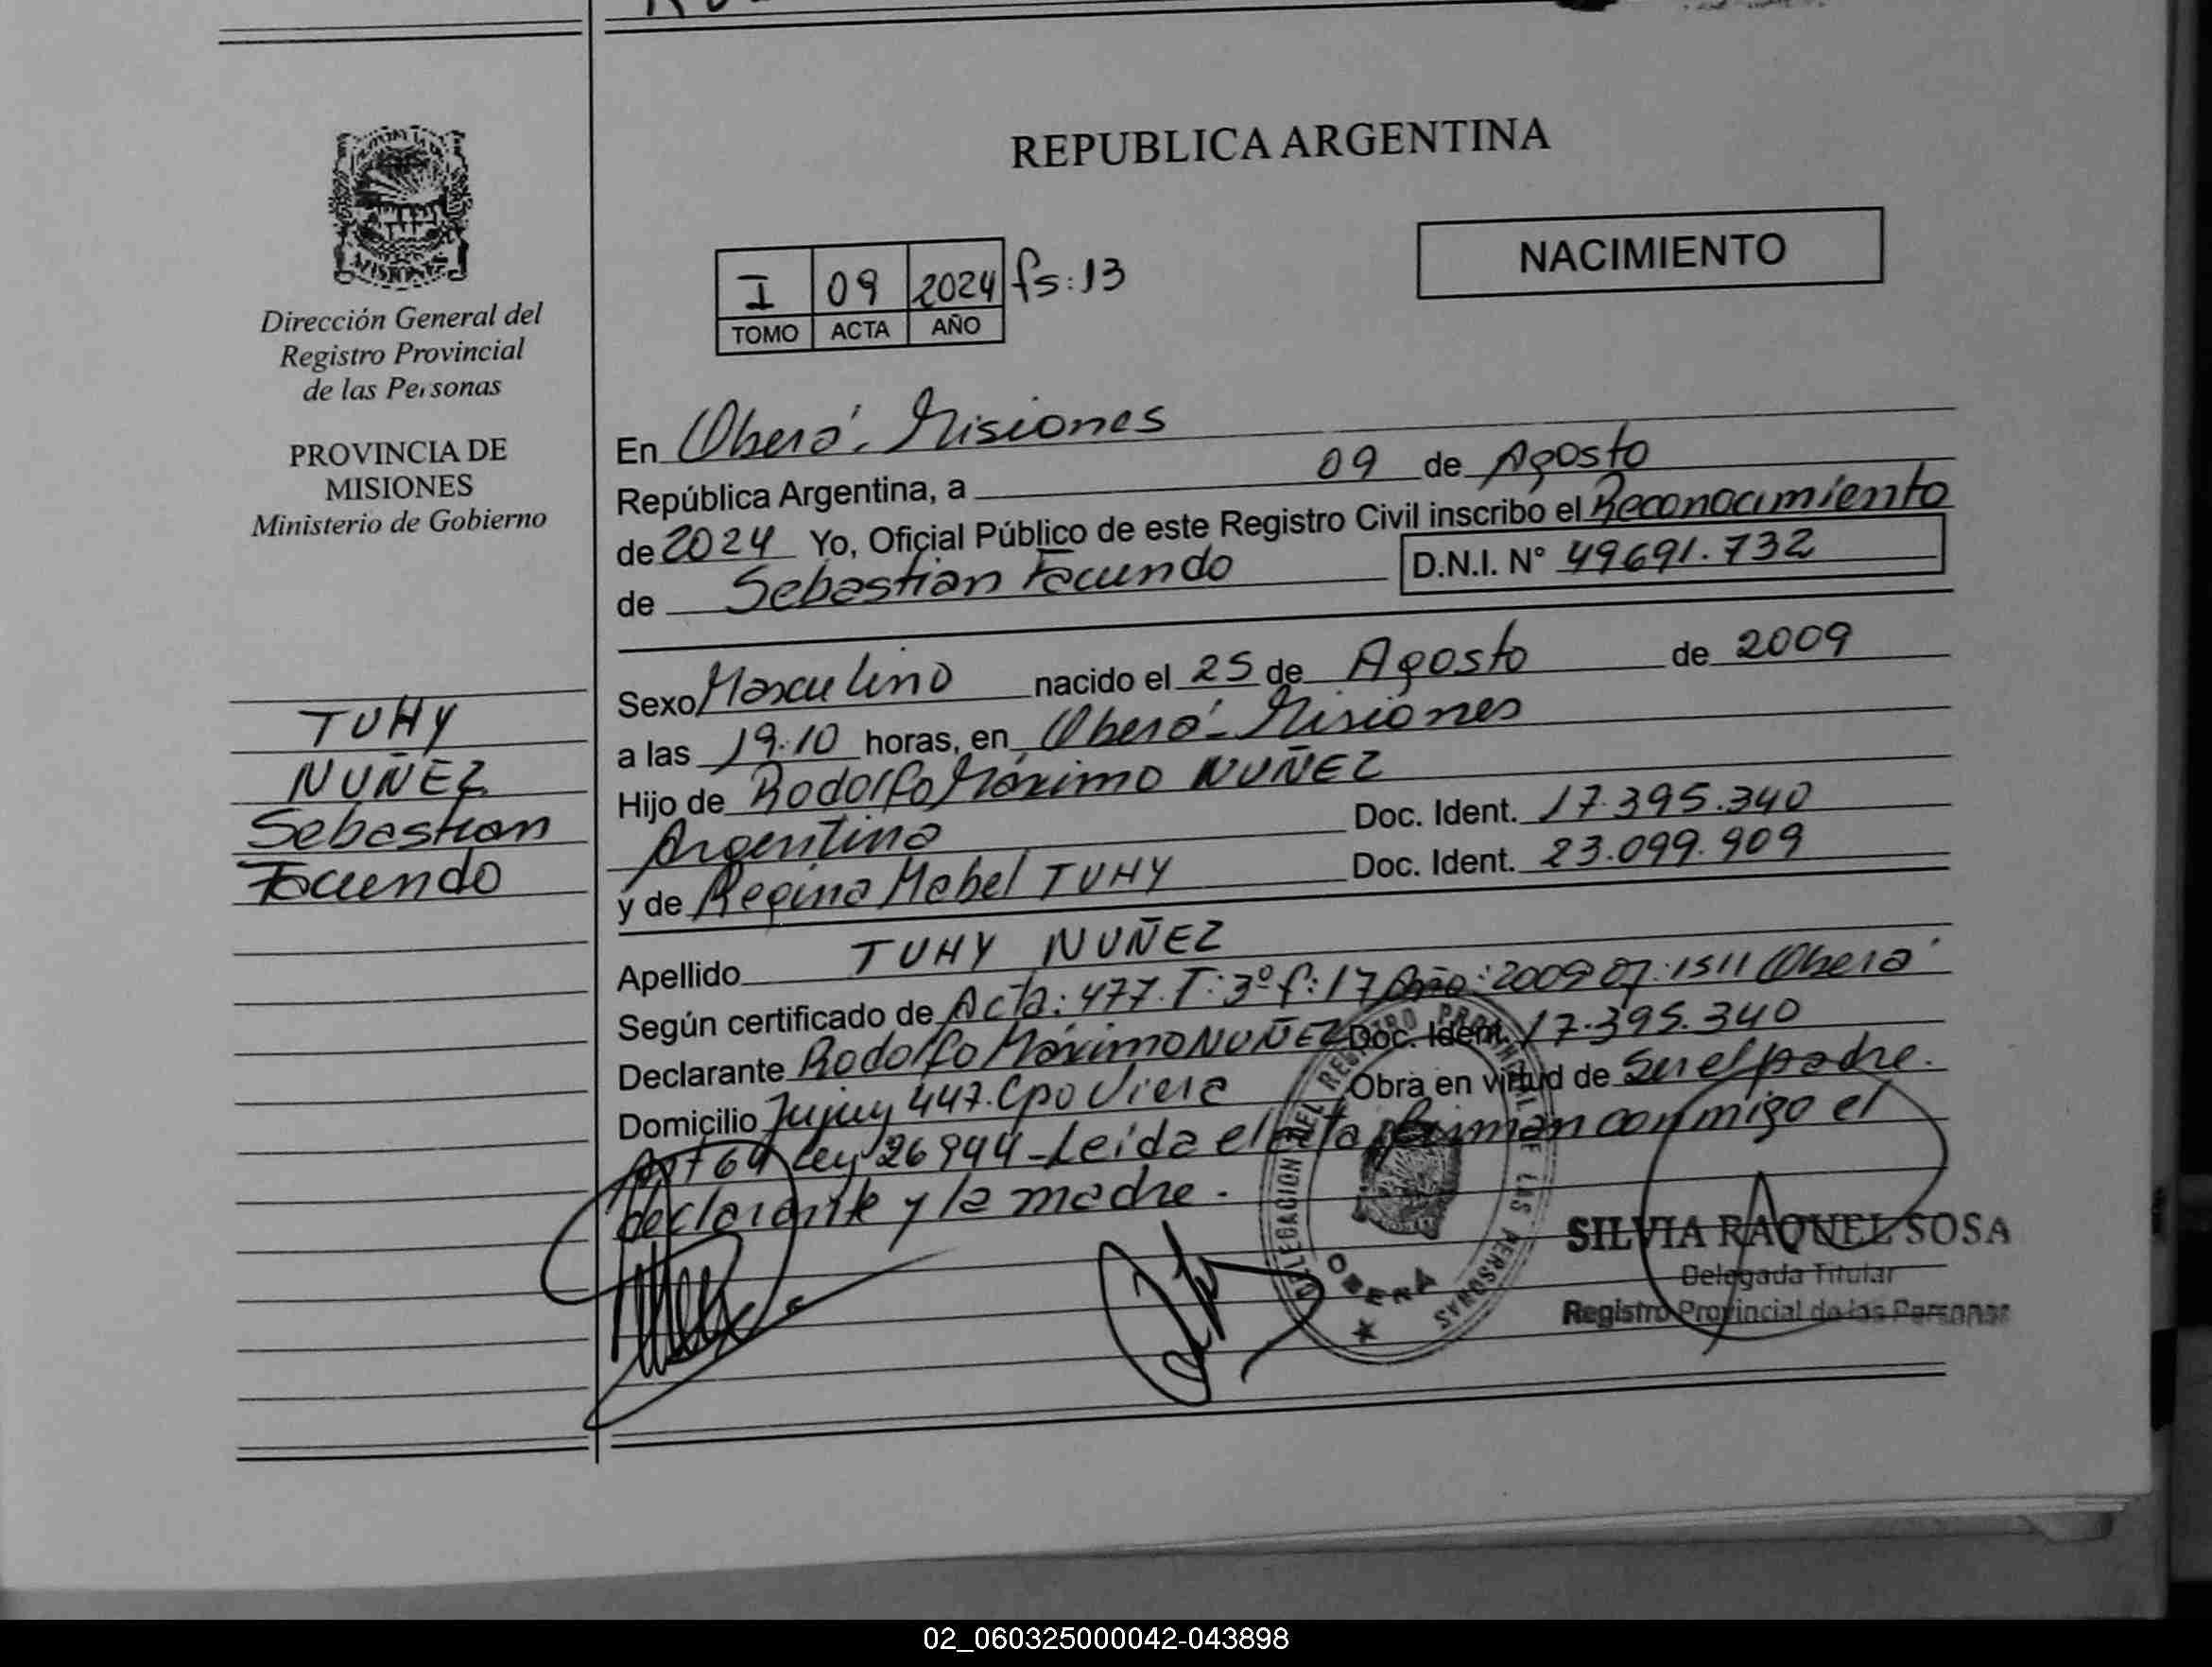 REPUBLICA ARGENTINA
NACIMIENTO
I 09 2024 fs:13
TOMO ACTA AÑO
MISIONES
Dirección General del
Registro Provincial
de las Personas
PROVINCIA DE
MISIONES
Ministerio de Gobierno
TUHY
NUÑEZ
Sebastian
Facundo
En Oberá - Misiones
República Argentina, a 09 de Agosto
de 2024 Yo, Oficial Público de este Registro Civil inscribo el Reconocimiento
de Sebastian Facundo D.N.I. N° 49691.732
Sexo Masculino nacido el 25 de Agosto de 2009
a las 19.10 horas, en Oberá - Misiones
Hijo de Rodolfo Máximo NUÑEZ
Argentina Doc. Ident. 17.395.340
y de Regina Mabel TUHY Doc. Ident. 23.099.909
Apellido TUHY NUÑEZ
Según certificado de Acta: 477. T: 3º f: 17 Año: 2009 07: 1511 Oberá
Declarante Rodolfo Máximo NUÑEZ Doc. Ident. 17.395.340
Domicilio Jujuy 447. Cpo Viera Obra en virtud de Ser el padre.
Art 64 Ley 26944 - Leida el acta firman conmigo el
declarante y la madre.
DELEGACION DEL REGISTRO PROVINCIAL DE LAS PERSONAS
OBERA
SILVIA RAQUEL SOSA
Delegada Titular
Registro Provincial de las Personas
02_060325000042-043898